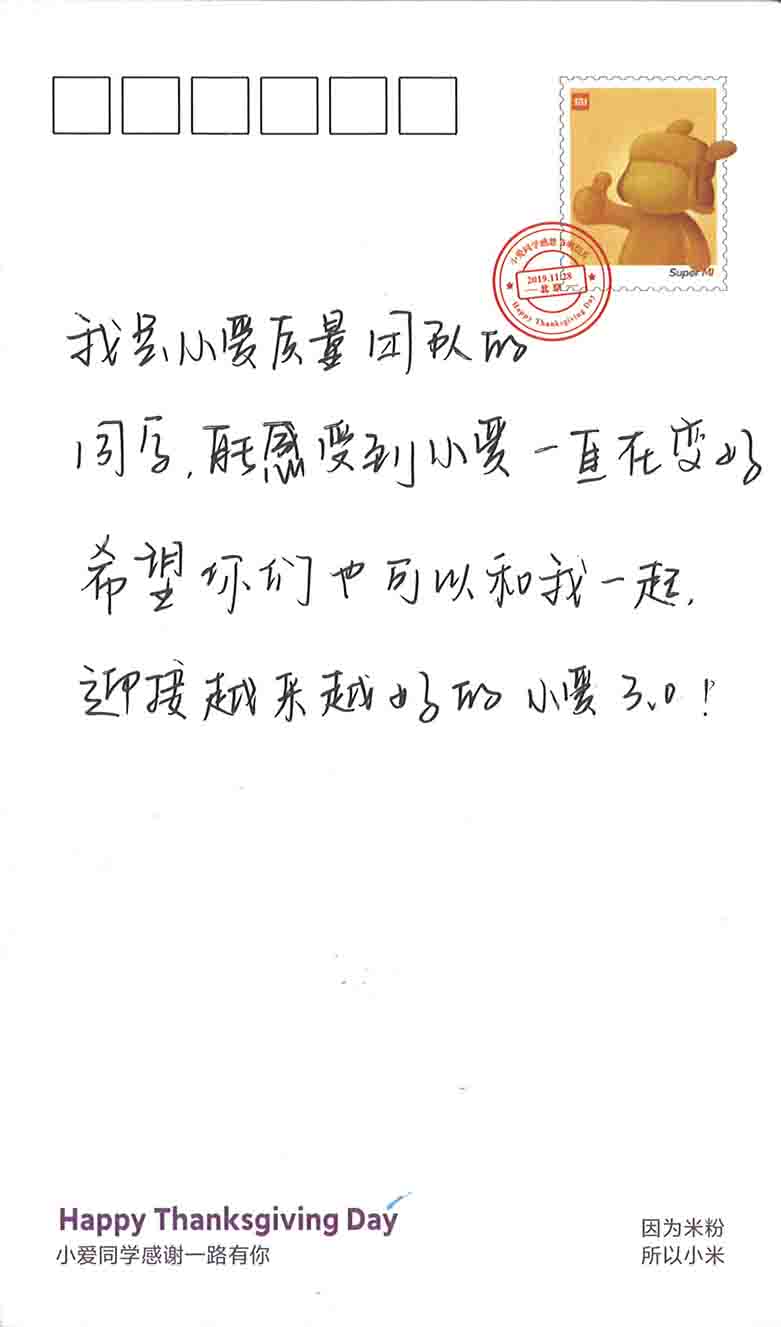 MI
Super MI
小爱同学感恩
2019.11.28
北京
Happy Thanksgiving Day
我是小爱质量团队的
同学,能感受到小爱一直在变好
希望你们也可以和我一起,
迎接越来越好的小爱3.0!
Happy Thanksgiving Day
小爱同学感谢一路有你
因为米粉
所以小米